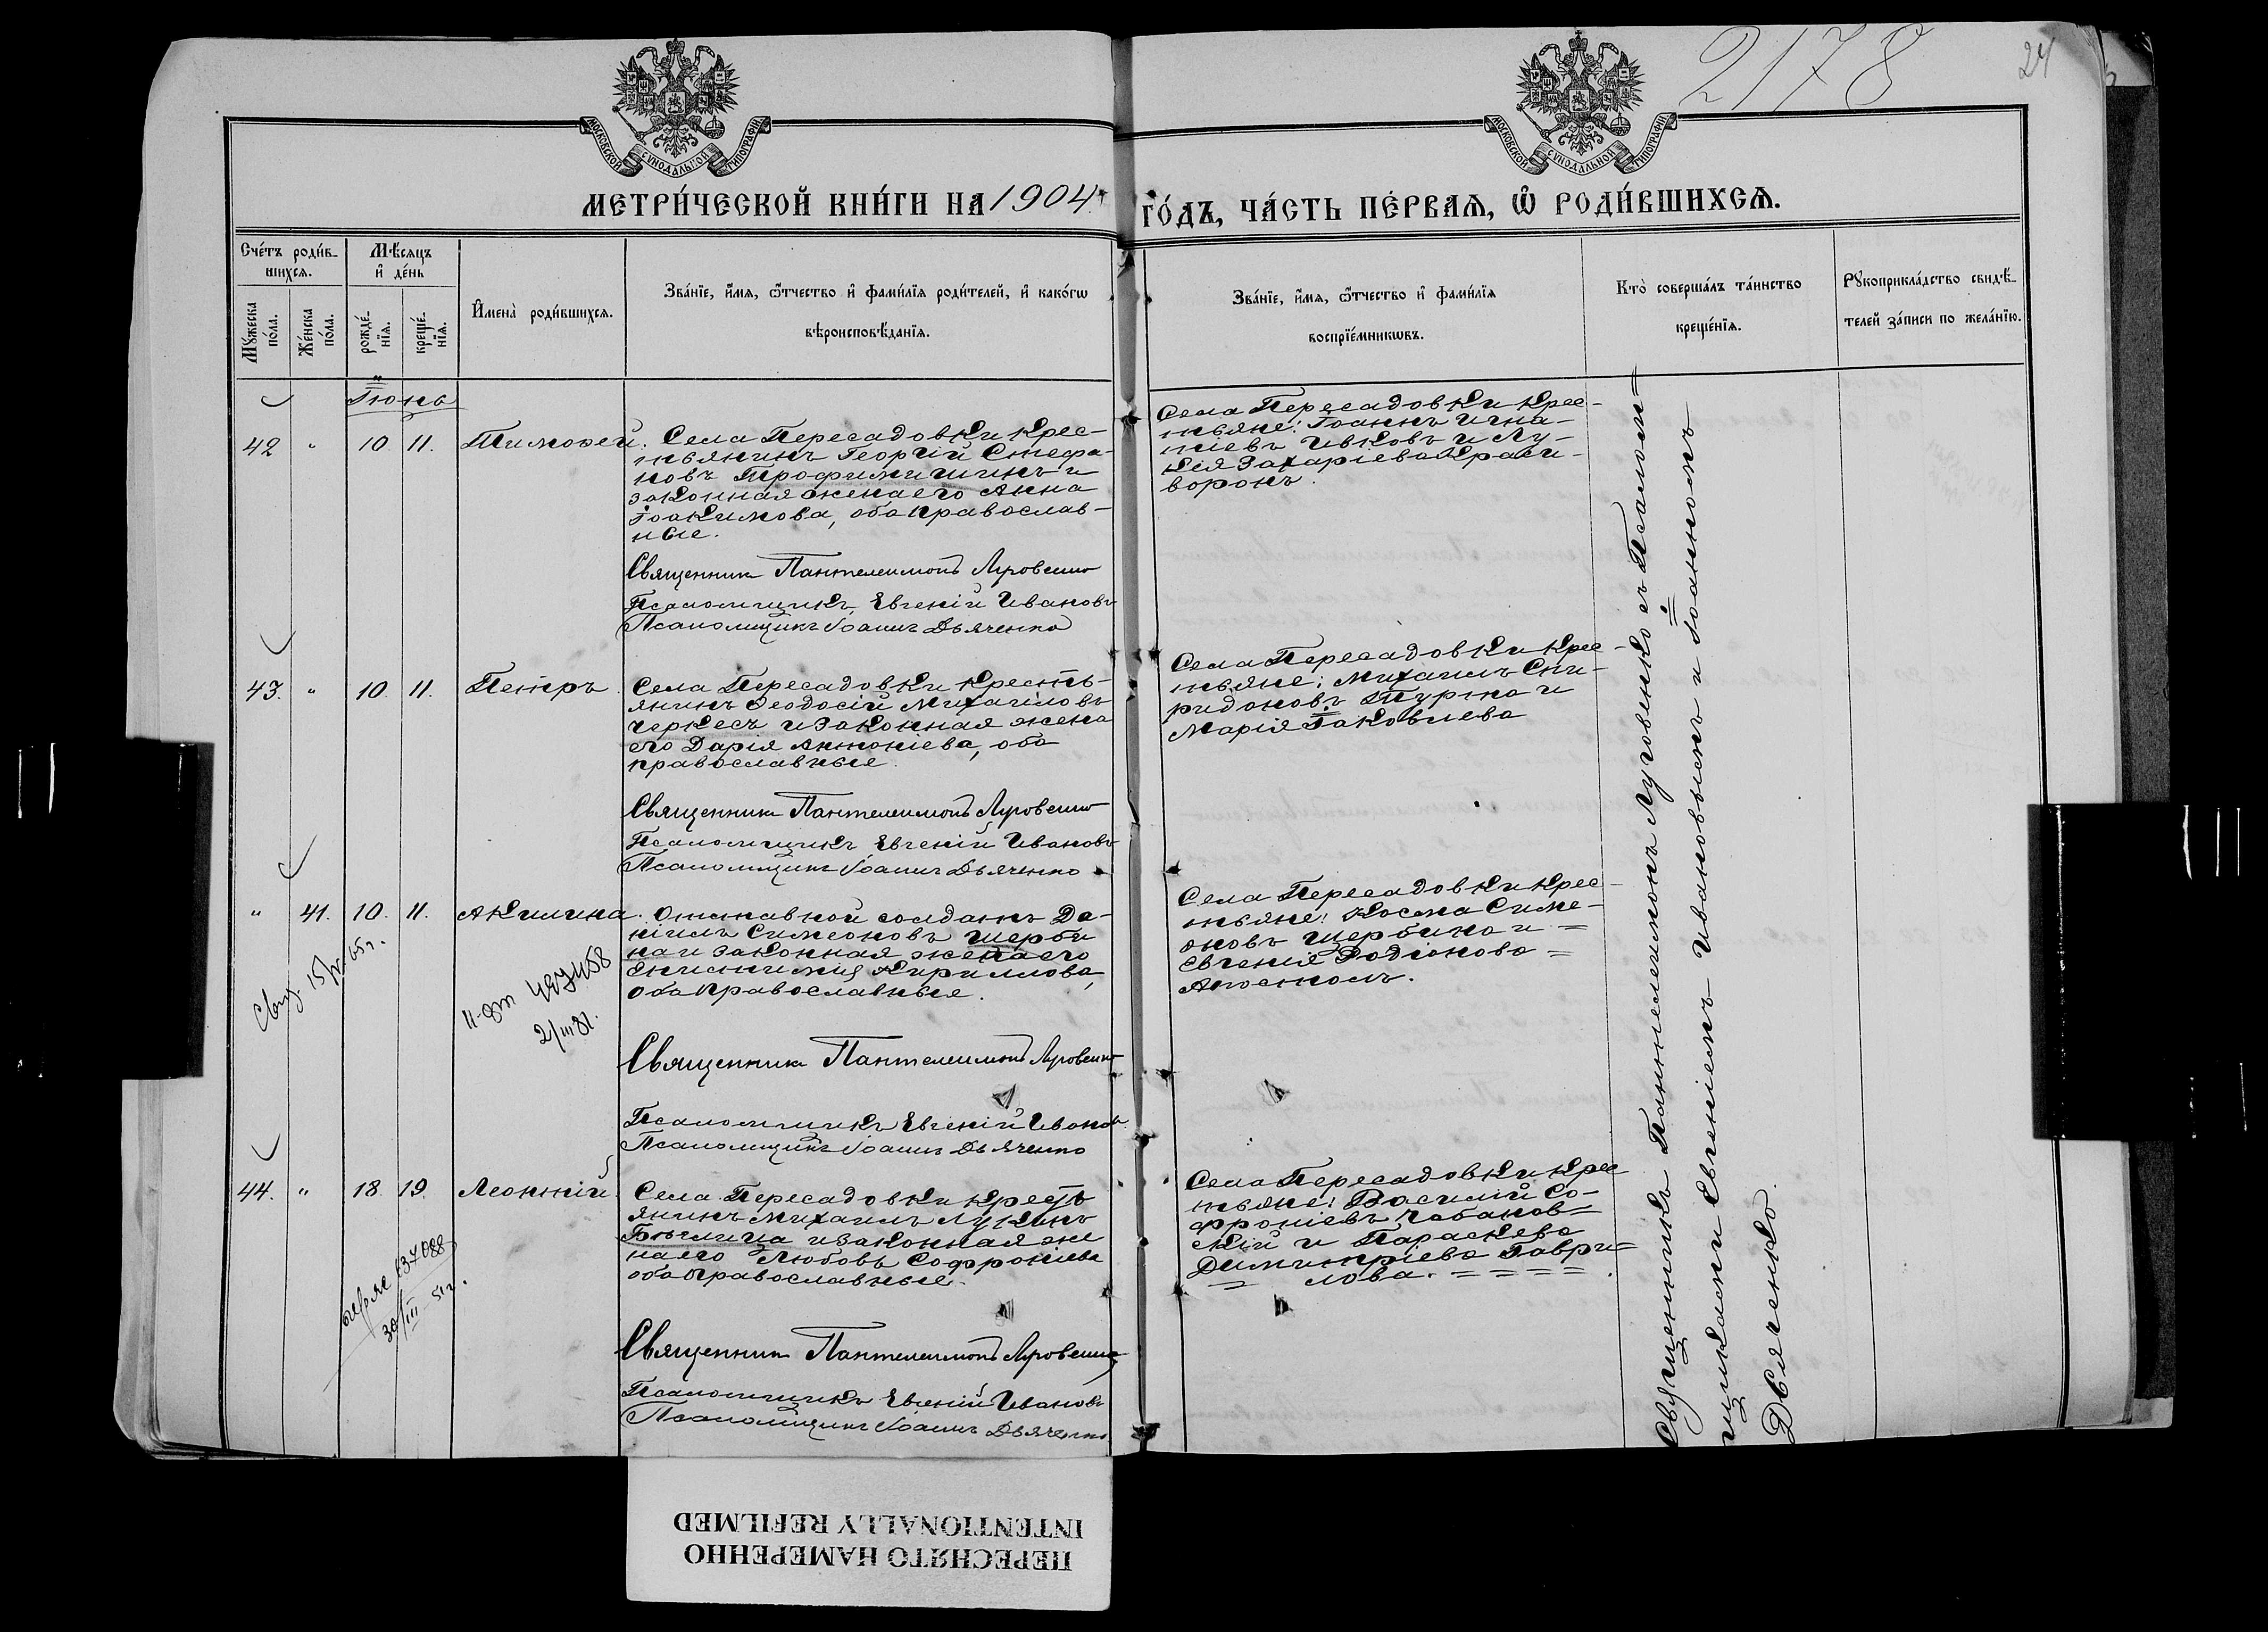 2178
24
МОСКОВСКОЙ СУНОДАЛЬНОЙ ТИПОГРАФІИ
МОСКОВСКОЙ СУНОДАЛЬНОЙ ТИПОГРАФІИ
МЕТРИ́ЧЕСКОЙ КНИ́ГИ НА 1904
ГО́ДЪ, ЧА́СТЬ ПЕ́РВАѦ, Ѡ҆ РОДИ́ВШИХСѦ.
Сче́тъ роди́в-
шихсѧ.
Мѣ́сѧцъ
и҆ де́нь
Мꙋ́жеска
по́ла.
Же́нска
по́ла.
рожде́-
нїѧ.
креще́-
нїѧ.
И҆мена̀ роди́вшихсѧ.
Зва́нїе, и҆́мѧ, ѻ҆́тчество и҆ фами́лїѧ роди́телей, и҆ како́гѡ
вѣроисповѣ́данїѧ.
Зва́нїе, и҆́мѧ, ѻ҆́тчество и҆ фами́лїѧ
воспрїе́мникѡвъ.
Кто̀ соверша́лъ та́инство
креще́нїѧ.
Рꙋкоприкла́дство свидѣ́-
телей за́писи по жела́нїю.
Іюнь
42 " 10 11. Тимоѳей.
Села Пересадовки крес-
тьянинъ Георгій Стефа-
новъ Трофимишинъ и
законная жена его Анна
Іоакимова, оба православ-
ные.
Священникъ Пантелеимонъ Луговенко
Псаломщикъ Евгеній Ивановъ
Псаломщикъ Іоаннъ Дьяченко
Села Пересадовки крес-
тьяне: Іоаннъ Игна-
тіевъ Ивковъ и Лу-
кія Захаріева Краси-
воронъ.
43. " 10. 11. Петръ.
Села Пересадовки кресть-
янинъ Ѳеодосій Михаиловъ
Черкесъ и законная жена
его Дарія Антоніева, оба
православные.
Священникъ Пантелеимонъ Луговенко
Псаломщикъ Евгеній Ивановъ
Псаломщикъ Іоаннъ Дьяченко
Села Пересадовки крес-
тьяне: Михаилъ Спи-
ридоновъ Турко и
Марія Іаковлева
" 41. 10. 11. Акилина.
Отставной солдатъ Да-
ніилъ Симеоновъ Щерби
на и законная жена его
Кириллова,
оба православные.
Священникъ Пантелеимонъ Луговенко
Псаломщикъ Евгеній Ивановъ
Псаломщикъ Іоаннъ Дьяченко
Села Пересадовки крес-
тьяне: Косма Симе-
оновъ Щербина и =
Евгенія Родіонова =
487458
2/III 81.
44. " 18. 19. Леонтій.
Села Пересадовки крест
янинъ Михаилъ Лукинъ
и законная же
на его Любовь Софроніева
оба православные.
Священникъ Пантелеимонъ Луговенко
Псаломщикъ Евгеній Ивановъ
Псаломщикъ Іоаннъ Дьяченко
Села Пересадовки крес
тьяне: Василій Со-
фроніевъ Чабанов=
скій и Параскева
Димитріева Гаври=
лова.
137088
30/III 51г.
Священникъ Пантелеимонъ Луговенко съ Псалом=
щиками Евгеніемъ Ивановымъ и Іоанномъ
Дьяченко.
ПЕРЕСНЯТО НАМЕРЕННО
INTENTIONALLY REFILMED